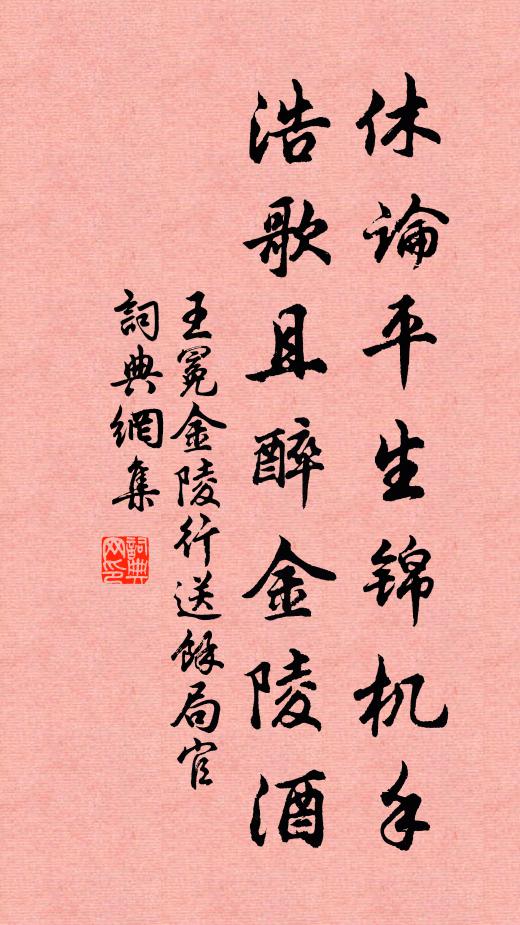 休论平生锦机手
浩歌且醉金陵酒
王冕金陵行送餘局官
詞典網集
詞典网印